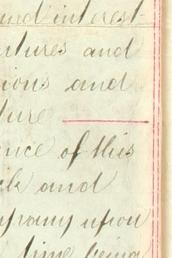 und interest
tures and
ions and
ture
nce of this
ck and
mpany upon
time being